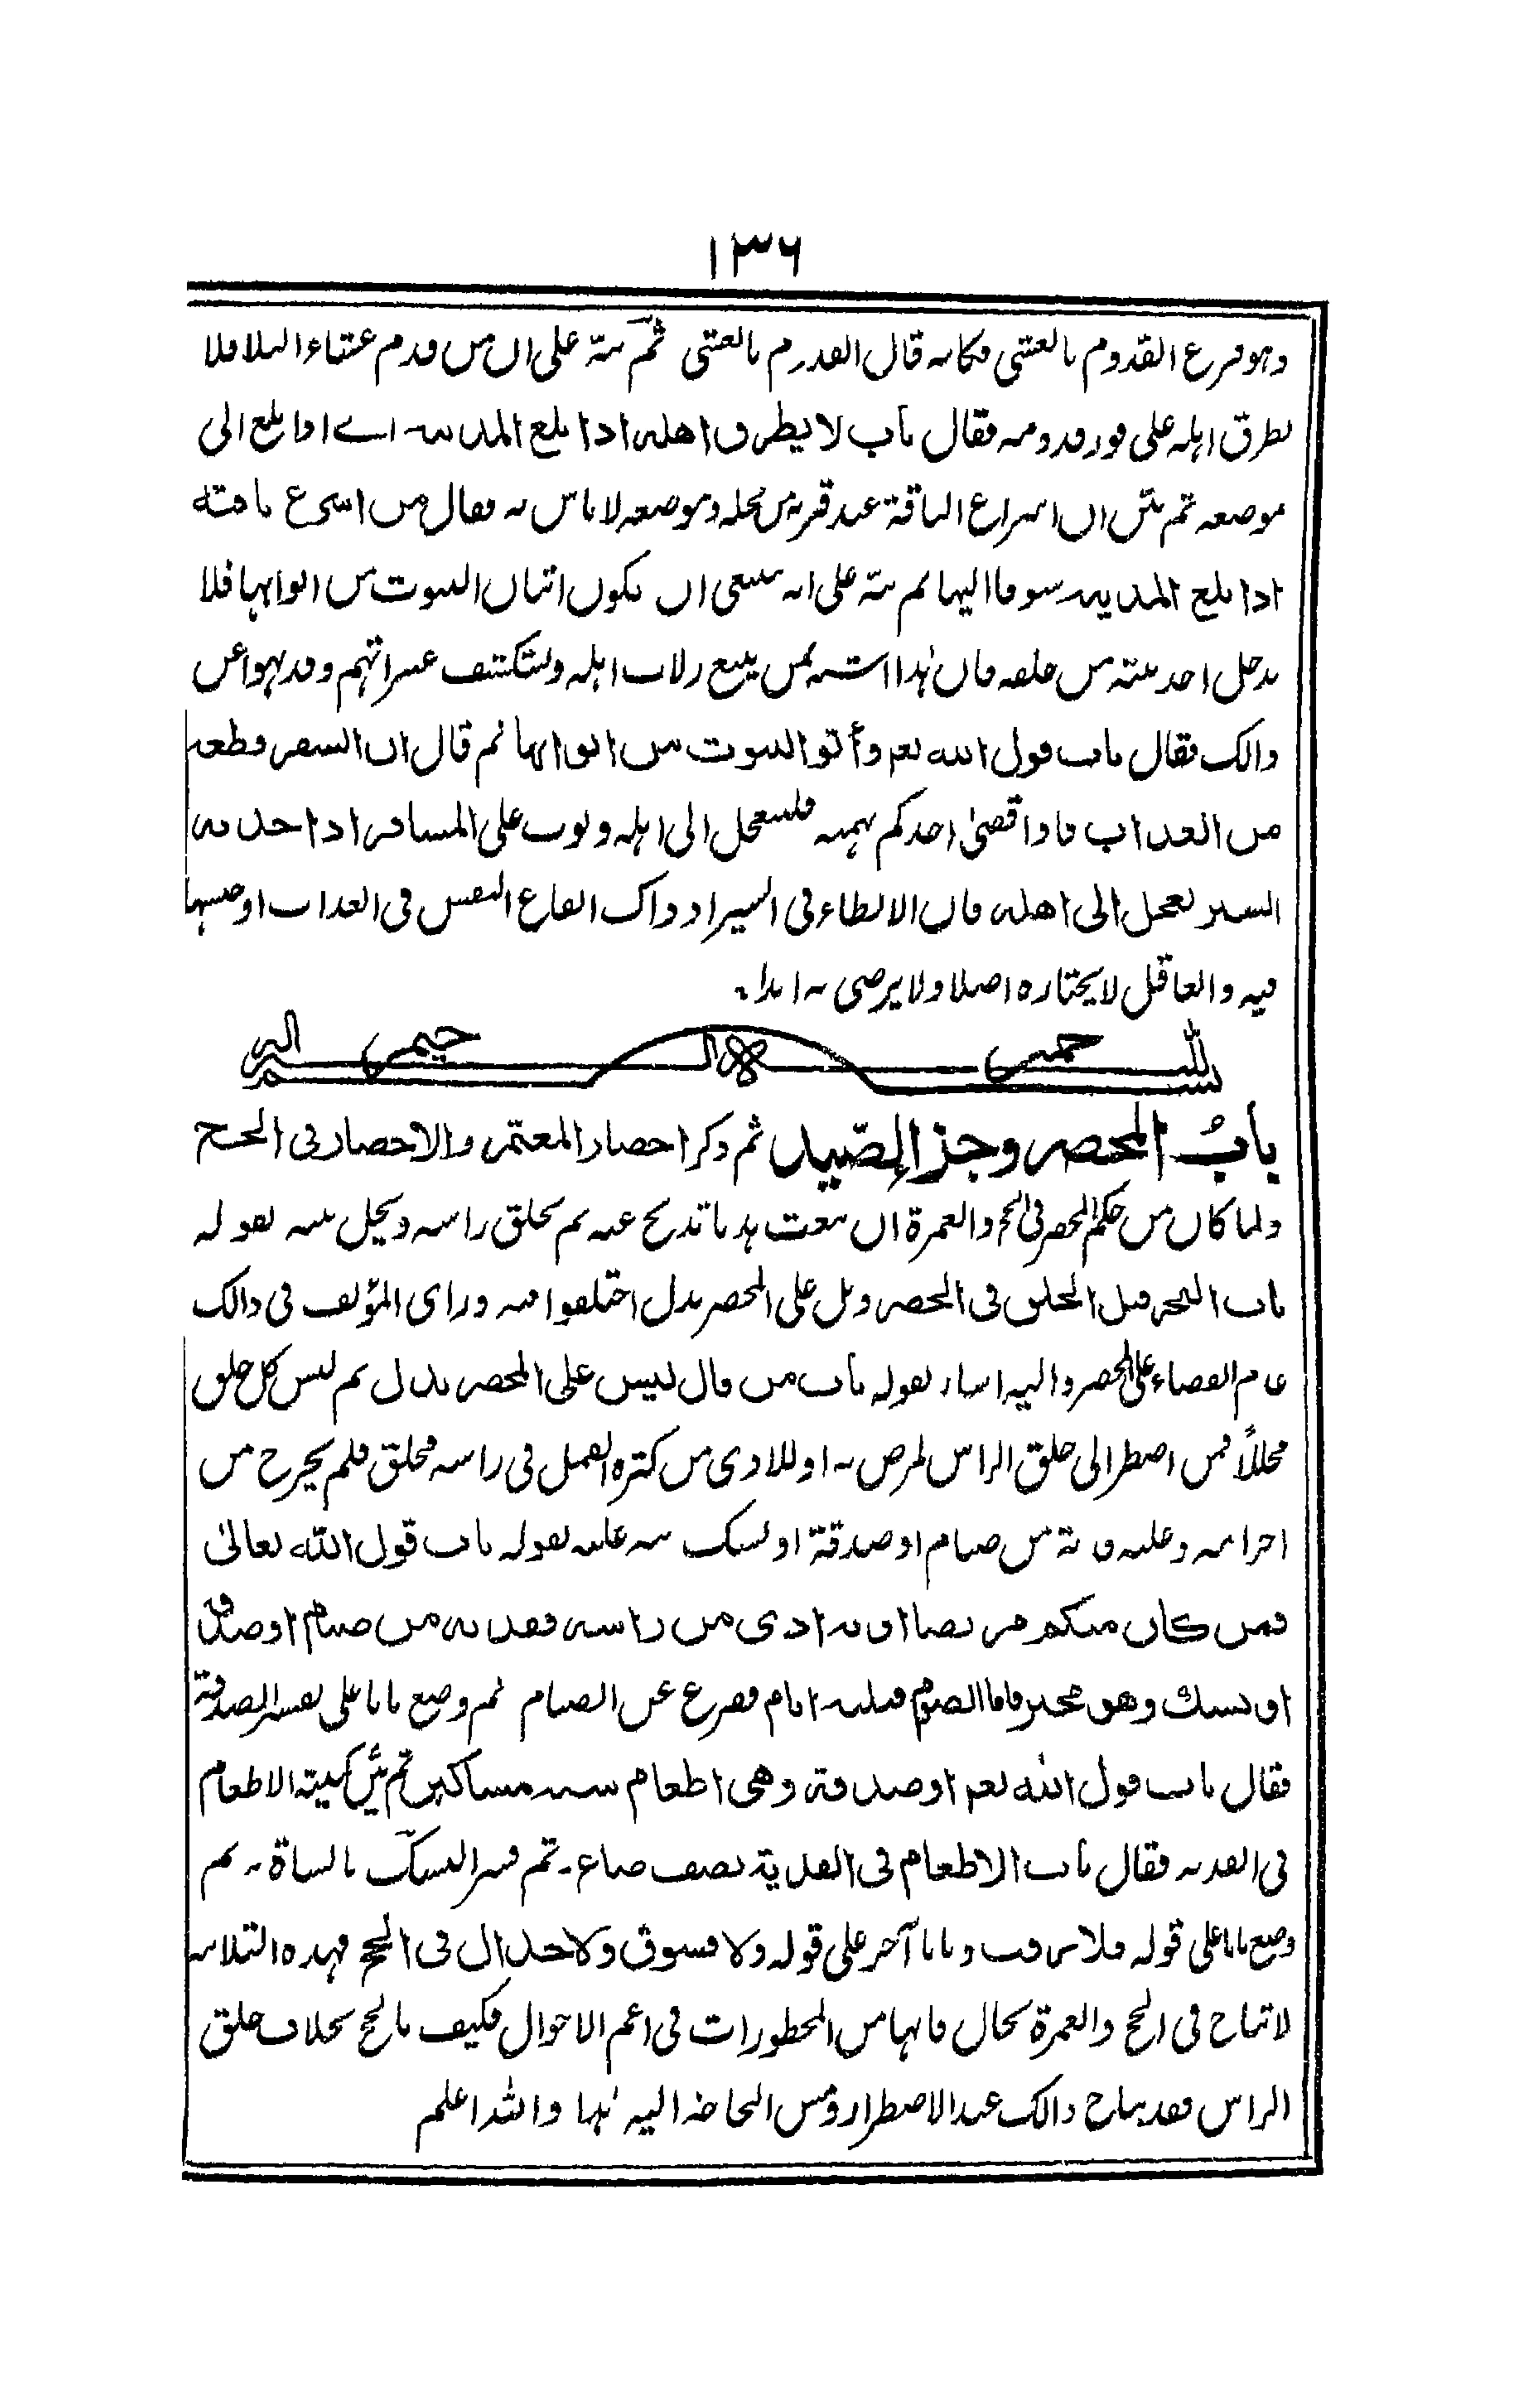 ١٣٦
وهو فرع القدوم بالعشي فكانه قال القدوم بالعشي ثم نبه على ان من قدم عشاء او ليلا فلا
يطرق اهله على فور قدومه فقال باب لا يطرق اهله اذا بلغ المدينة اے اذا بلغ الى
موضعه ثم بين ان اسراع الناقة عند قربه من محله وموضعه لا باس به فقال من اسرع ناقته
اذا بلغ المدينة شوقا اليها ثم نبه على انه ينبغي ان يكون اتيان البيوت من ابوابها فلا
يدخل احد بيته من خلفه فان هذا اشبه بمن يتبع زلات اهله ويستكشف عثراتهم وقد نهوا عن
ذالك فقال باب قول الله تعم وأتوا البيوت من ابوابها ثم قال ان السفر قطعة
من العذاب فاذا قضى احدكم نهمته فليتعجل الى اهله وبوب على المسافر اذا جد به
السير تعجل الى اهله فان الابطاء في السير اذ ذاك ايقاع النفس في العذاب او حبسها
فيه والعاقل لا يختاره اصلا ولا يرضى به ابدا۔
بسم الله الرحمن الرحيم
باب المحصر وجزا الصيد ثم ذكر احصار المعتمر والاحصار في الحج
ولما كان من حكم المحصر في الحج والعمرة ان يبعث هديا تذبح عنه ثم يحلق راسه ويحل بينه بقوله
باب النحر قبل الحلق في الحصر وهل على المحصر بدل اختلفوا فيه وراى المؤلف في ذالك
عدم القضاء على المحصر واليه اشار بقوله باب من قال ليس على المحصر بدل ثم ليس كل حلق
محللاً فمن اضطر الى حلق الراس لمرض به او للاذى من كثرة القمل في راسه فحلق فلم يخرج من
احرامه وعليه فدية من صيام او صدقة او نسك نبه عليه بقوله باب قول الله تعالى
فمن كان منكم مريضا او به اذى من راسه ففدية من صيام او صدقة
او نسك وهو مخير فاما الصوم فثلثة ايام ففرغ عن الصيام ثم وضع بابا على تفسير الصدقة
فقال باب قول الله تعم او صدقة وهى اطعام ستة مساكين ثم بين كمية الاطعام
في الفدية فقال باب الاطعام في الفدية نصف صاع۔ ثم فسر النسك بالشاة۔ ثم
وضع بابا على قوله فلا رفث وبابا آخر على قوله ولا فسوق ولا جدال في الحج فهذه الثلاثة
لا تباح في الحج والعمرة بحال فانها من المحظورات في اعم الاحوال فكيف بالحج بخلاف حلق
الراس فقد يباح ذالك عند الاضطرار ومس الحاجة اليه نها والله اعلم